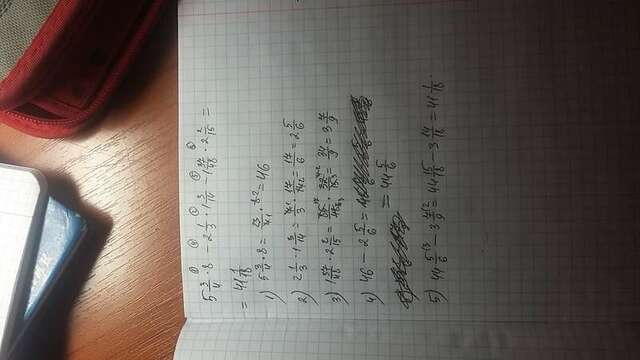 ① ④ ② ⑤ ③
5 3/4 · 8 − 2 1/3 · 1 3/14 − 1 37/48 · 2 2/15 =
= 41 1/18
1) 5 3/4 · 8 = 23/4 1 · 8 2 = 46
2) 2 1/3 · 1 3/14 = 7 1/3 · 17/14 2 = 17/6 = 2 5/6
3) 1 37/48 · 2 2/15 = 85 17/48 3 · 32 2/15 3 = 34/9 = 3 7/9
4) 46 − 2 5/6 =
= 44 5/6
5) 44 5/6 ·3 − 3 7/9 ·2 = 44 15/18 − 3 14/18 = 41 1/18.